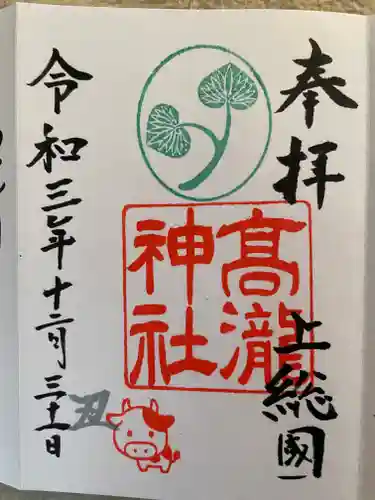 奉拝
上総國一
高瀧神社
令和三年十二月三十一日
丑